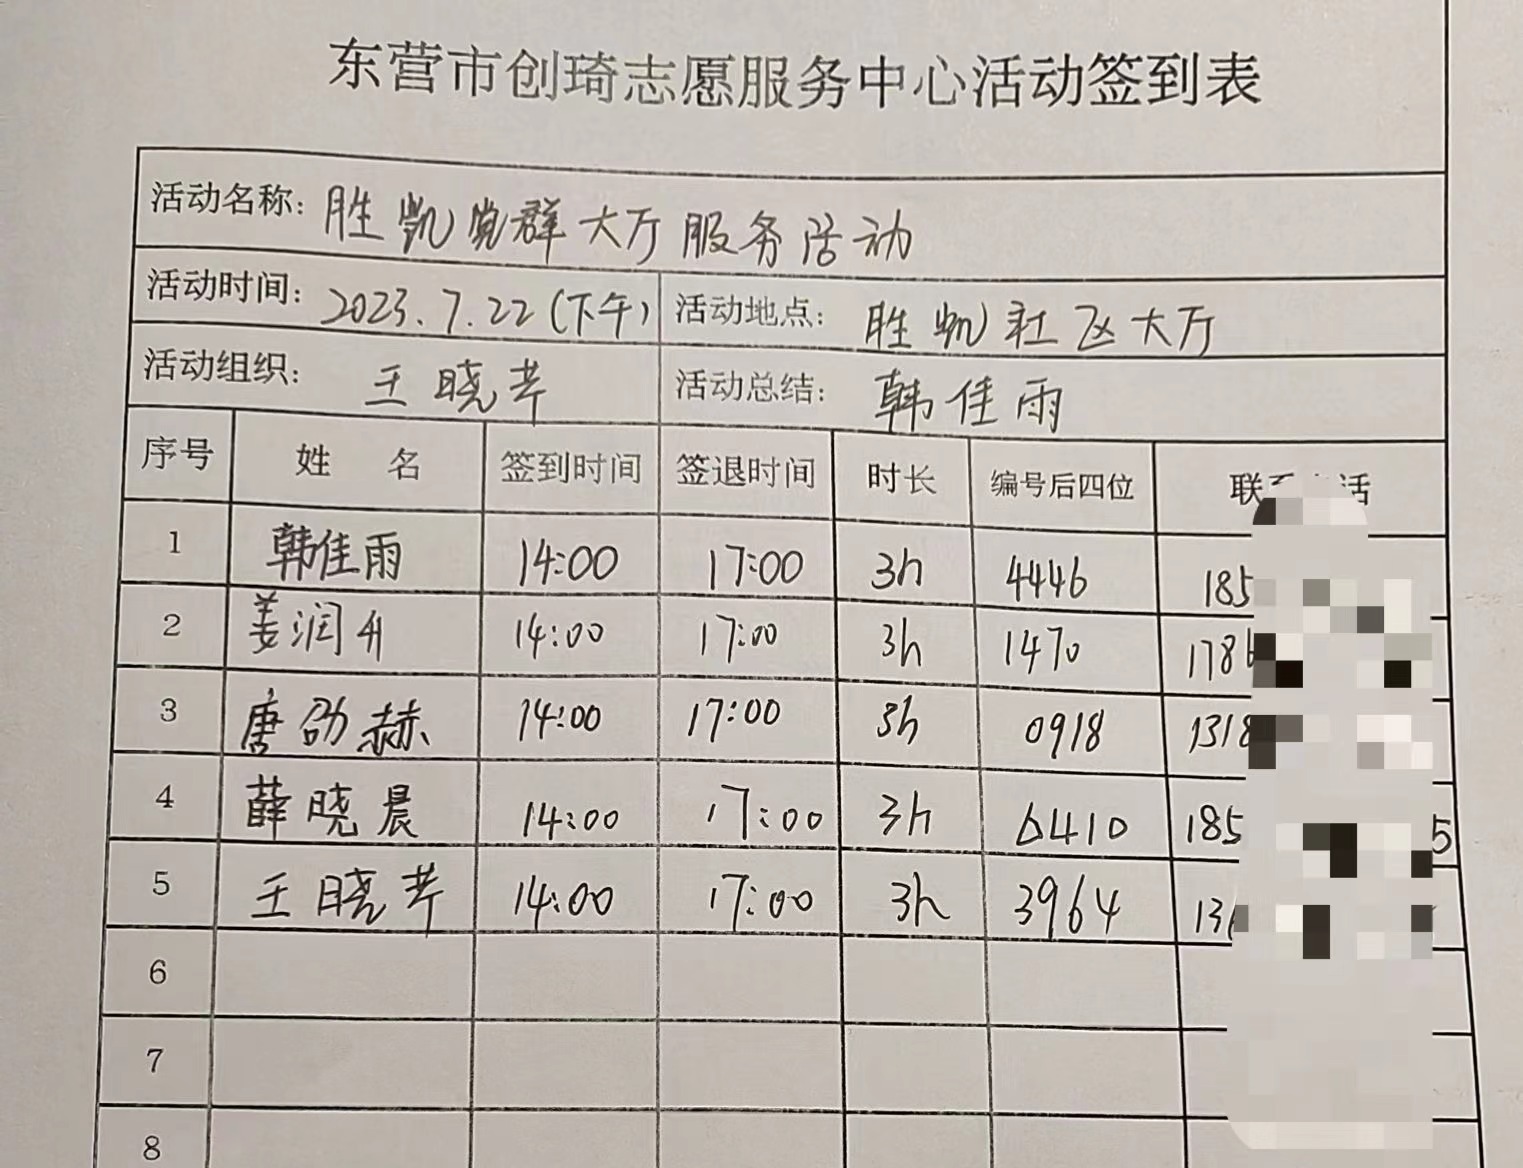 东营市创琦志愿服务中心活动签到表
活动名称：胜凯党群大厅服务活动
活动时间：2023.7.22（下午） 活动地点：胜凯社区大厅
活动组织：王晓芹 活动总结：韩佳雨
序号 姓 名 签到时间 签退时间 时长 编号后四位 联 话
1 韩佳雨 14:00 17:00 3h 4446 185
2 姜润升 14:00 17:00 3h 1470 178
3 唐劭赫 14:00 17:00 3h 0918 1318
4 薛晓晨 14:00 17:00 3h 410 185 5
5 王晓芹 14:00 17:00 3h 3964 13
6
7
8